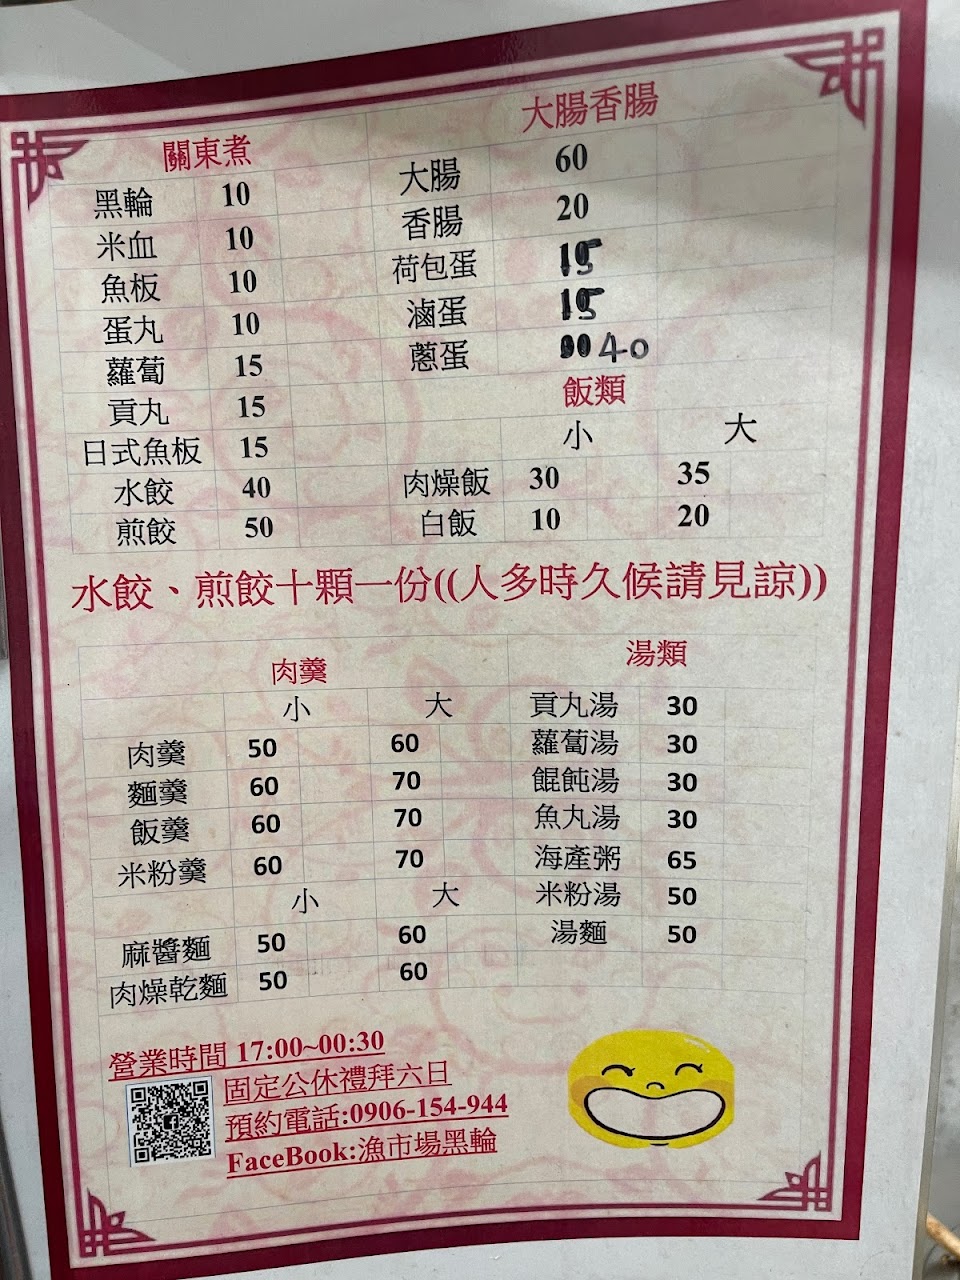 關東煮
黑輪 10
米血 10
魚板 10
蛋丸 10
蘿蔔 15
貢丸 15
日式魚板 15
水餃 40
煎餃 50
大腸香腸
大腸 60
香腸 20
荷包蛋 15
滷蛋 15
蔥蛋 40
飯類
小 大
肉燥飯 30 35
白飯 10 20
水餃、煎餃十顆一份((人多時久候請見諒))
肉羹
小 大
肉羹 50 60
麵羹 60 70
飯羹 60 70
米粉羹 60 70
小 大
麻醬麵 50 60
肉燥乾麵 50 60
湯類
貢丸湯 30
蘿蔔湯 30
餛飩湯 30
魚丸湯 30
海產粥 65
米粉湯 50
湯麵 50
營業時間 17:00~00:30
固定公休禮拜六日
預約電話:0906-154-944
FaceBook:漁市場黑輪